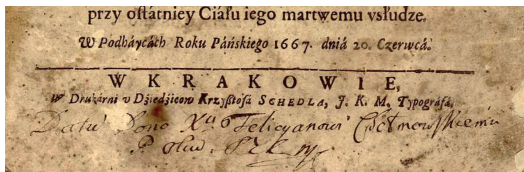 przy ostatniey Ciáłu iego martwemu vsłudze.
W Podháycách Roku Páńskiego 1667. dniá 20. Czerwcá.
W KRAKOWIE,
W Drukárni v Dźiedźicow Krzysztofá SCHEDLA, J. K. M, Typográfá,
Felicyanowi